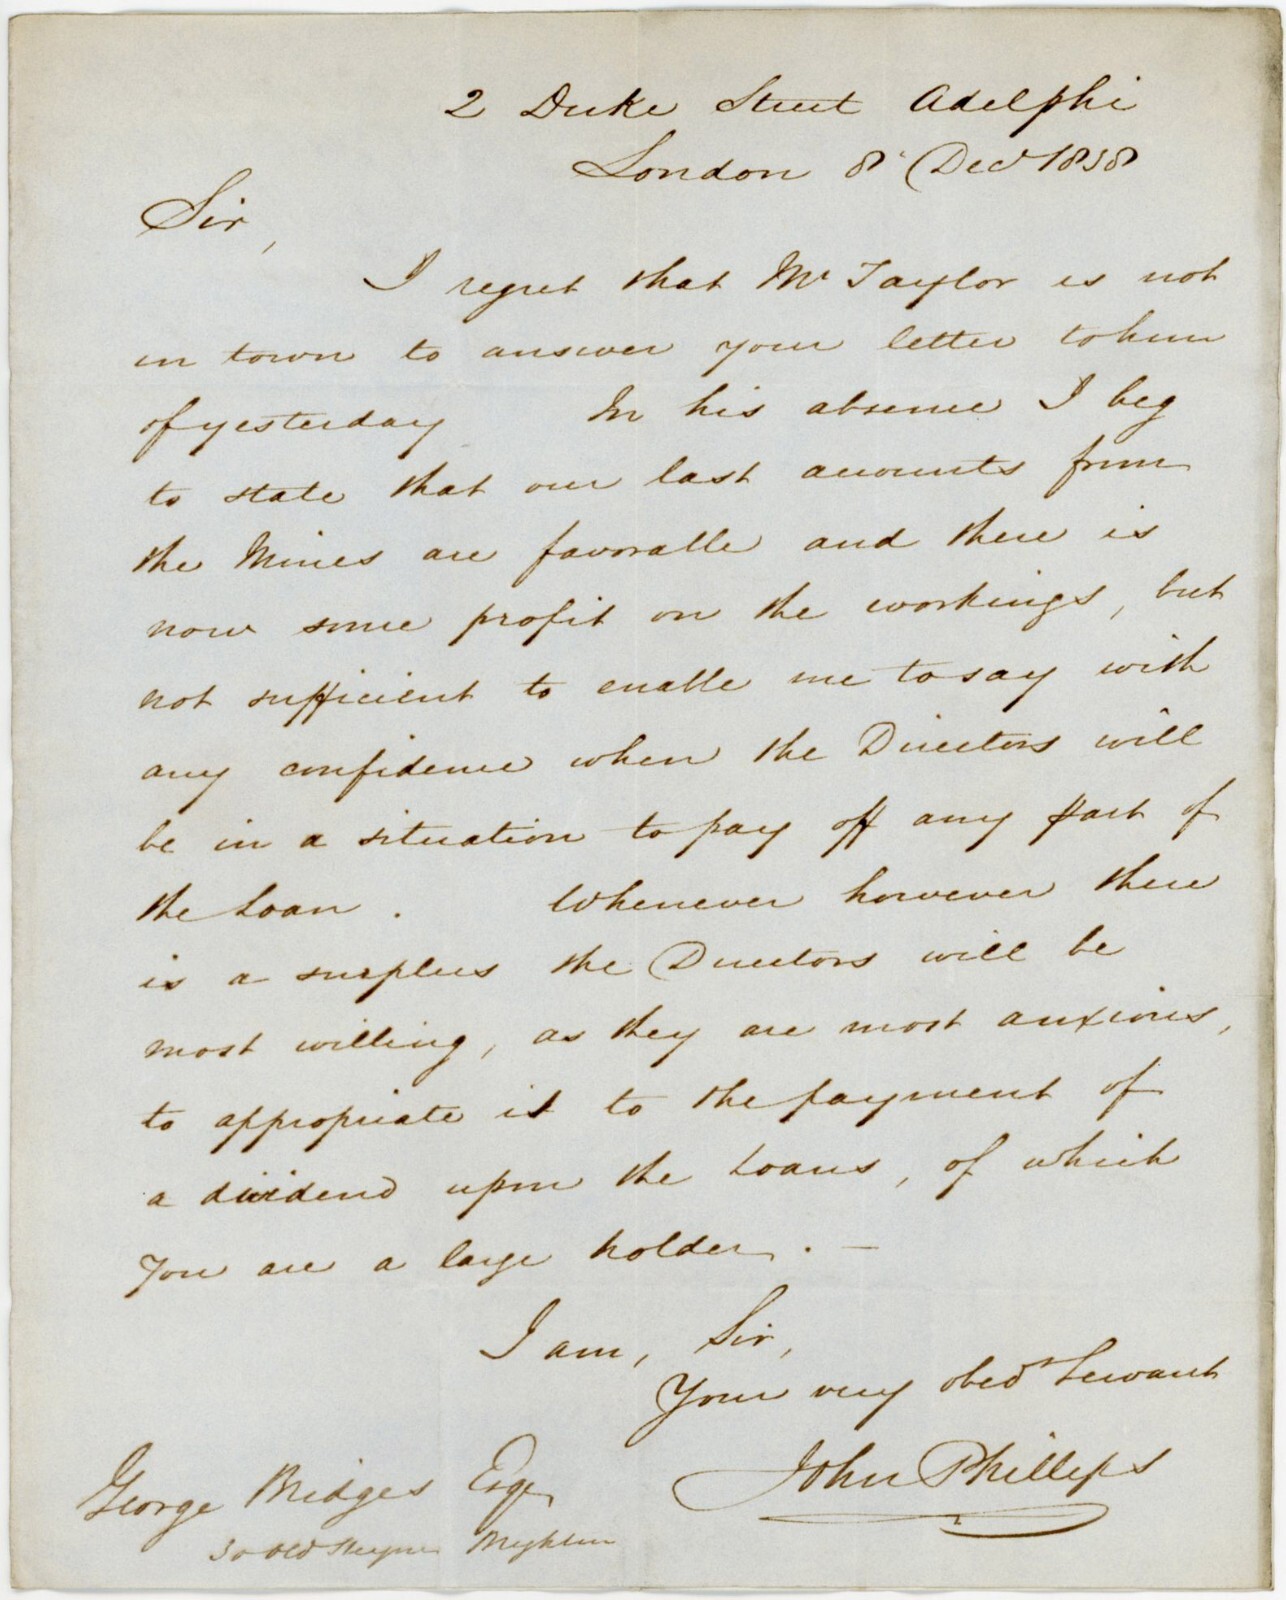 2 Duke Street Adelphi
London 8 Decr 1838
Sir,
I regret that Mr Taylor is not
in town to answer your letter to him
of yesterday In his absence I beg
to state that our last accounts from
the Mines are favorable and there is
now some profit on the workings, but
not sufficient to enable me to say with
any confidence when the Directors will
be in a situation to pay off any part of
the Loan. Whenever however there
is a surplus the Directors will be
most willing, as they are most anxious,
to appropriate it to the payment of
a dividend upon the Loans, of which
you are a large holder. —
I am, Sir,
Your very obedt Servant
John Phillips
George Bridges Esqe
30 Old Steyne Brighton